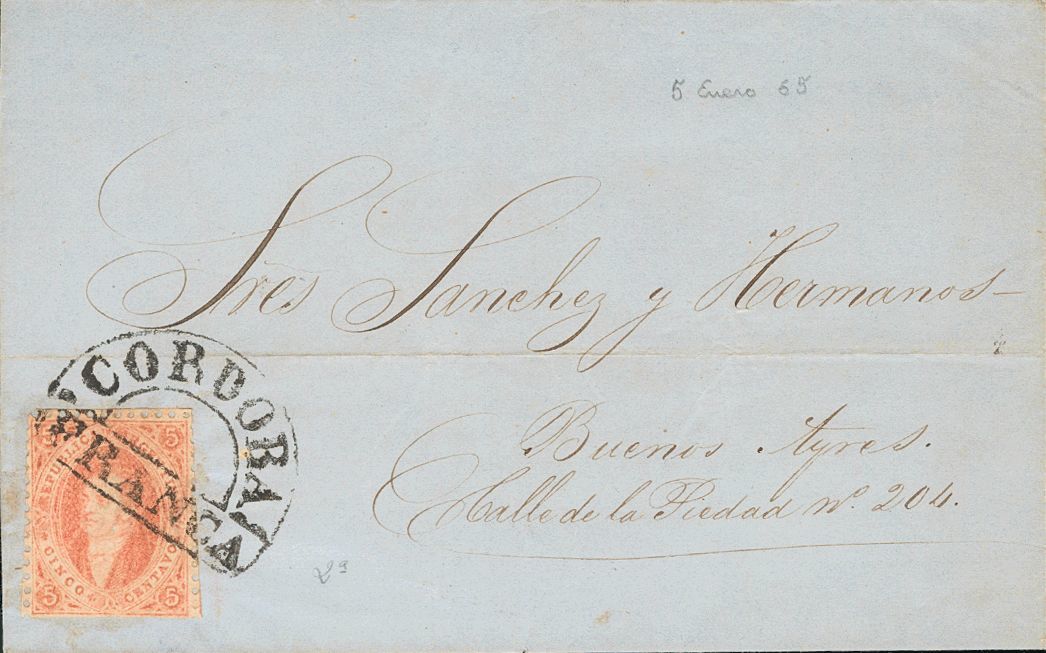 5 Enero 65
Sres Sanchez y Hermanos
Buenos Ayres.
Calle de la Piedad nº 204.
CORDOBA
FRANCA
REPUBLICA
5 5
CINCO CENTAVOS
5 5
2ª